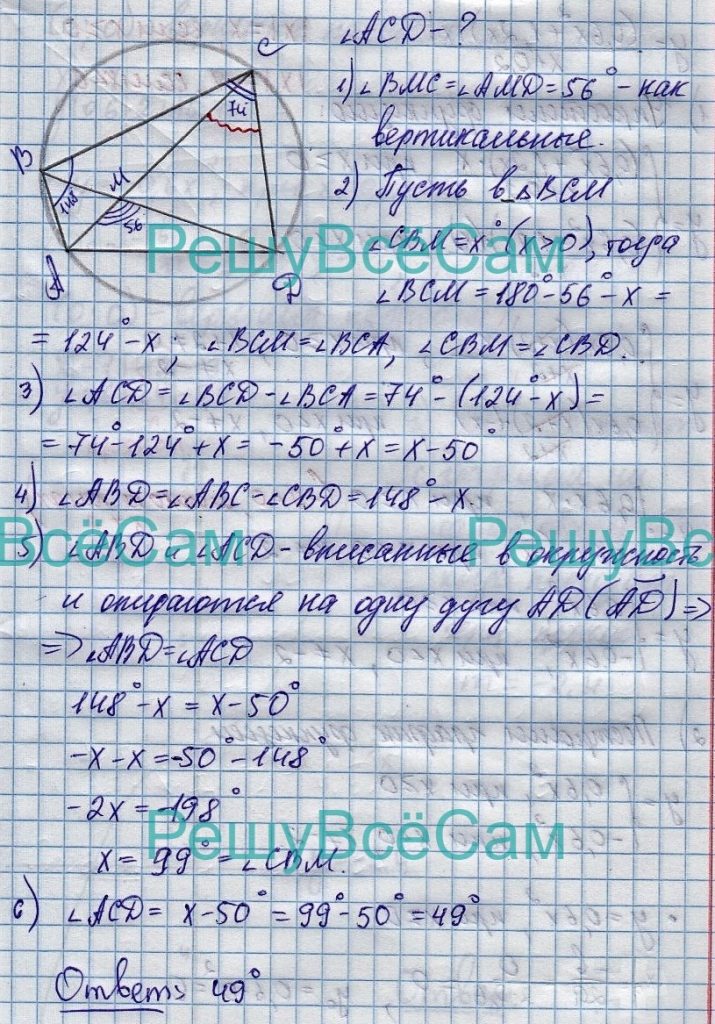 ∠ACD - ?
1) ∠BMC = ∠AMD = 56° - как
вертикальные.
2) Пусть в △BCM
∠CBM = x° (x>0), тогда
∠BCM = 180° - 56° - x =
= 124° - x; ∠BCM = ∠BCA, ∠CBM = ∠CBD.
3) ∠ACD = ∠BCD - ∠BCA = 74° - (124° - x) =
= 74° - 124° + x = -50° + x = x - 50°
4) ∠ABD = ∠ABC - ∠CBD = 148° - x.
5) ∠ABD и ∠ACD - вписанные в окружность
и опираются на одну дугу AD (AD) =>
=> ∠ABD = ∠ACD
148° - x = x - 50°
-x - x = -50° - 148°
-2x = -198°
x = 99° = ∠CBM.
6) ∠ACD = x - 50° = 99° - 50° = 49°
Ответ: 49°
C
74°
B
148°
M
56
A
D
РешуВсёСам
ВсёСам
РешуВс
РешуВсёСам